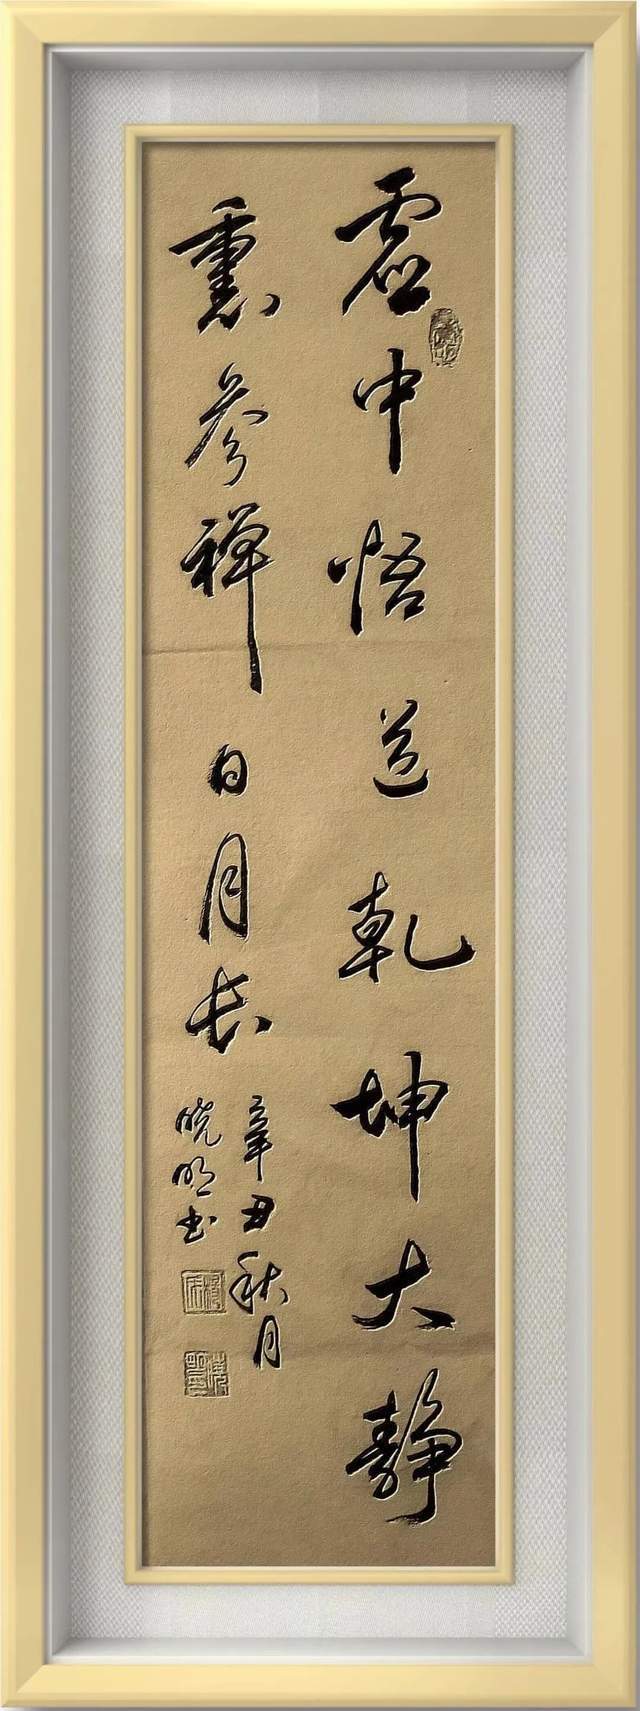 虚中悟道乾坤大静
裏参禅日月长
辛丑秋月
晓明书